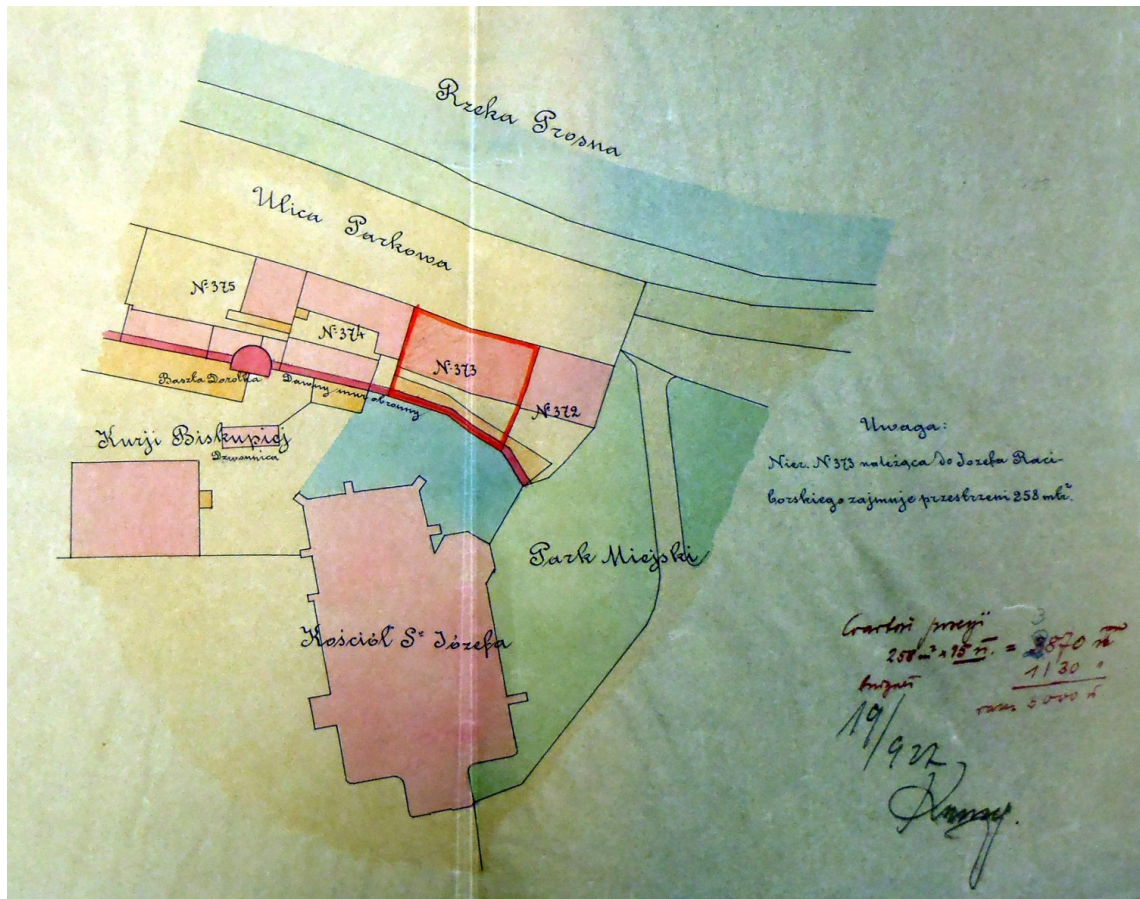 Rzeka Prosna
Ulica Parkowa
№ 375
№ 374
№ 373
№ 372
Baszta Dorotka
Dawny mur obronny
Kurji Biskupiej
Dzwonnica
Park Miejski
Kościół Sº Józefa
Uwaga:
Nier. N 373 należąca do Józefa Raci-
borskiego zajmuje przestrzeni 258 mtr².
258 m² × 15 = 3870
1130
5000
19/
922